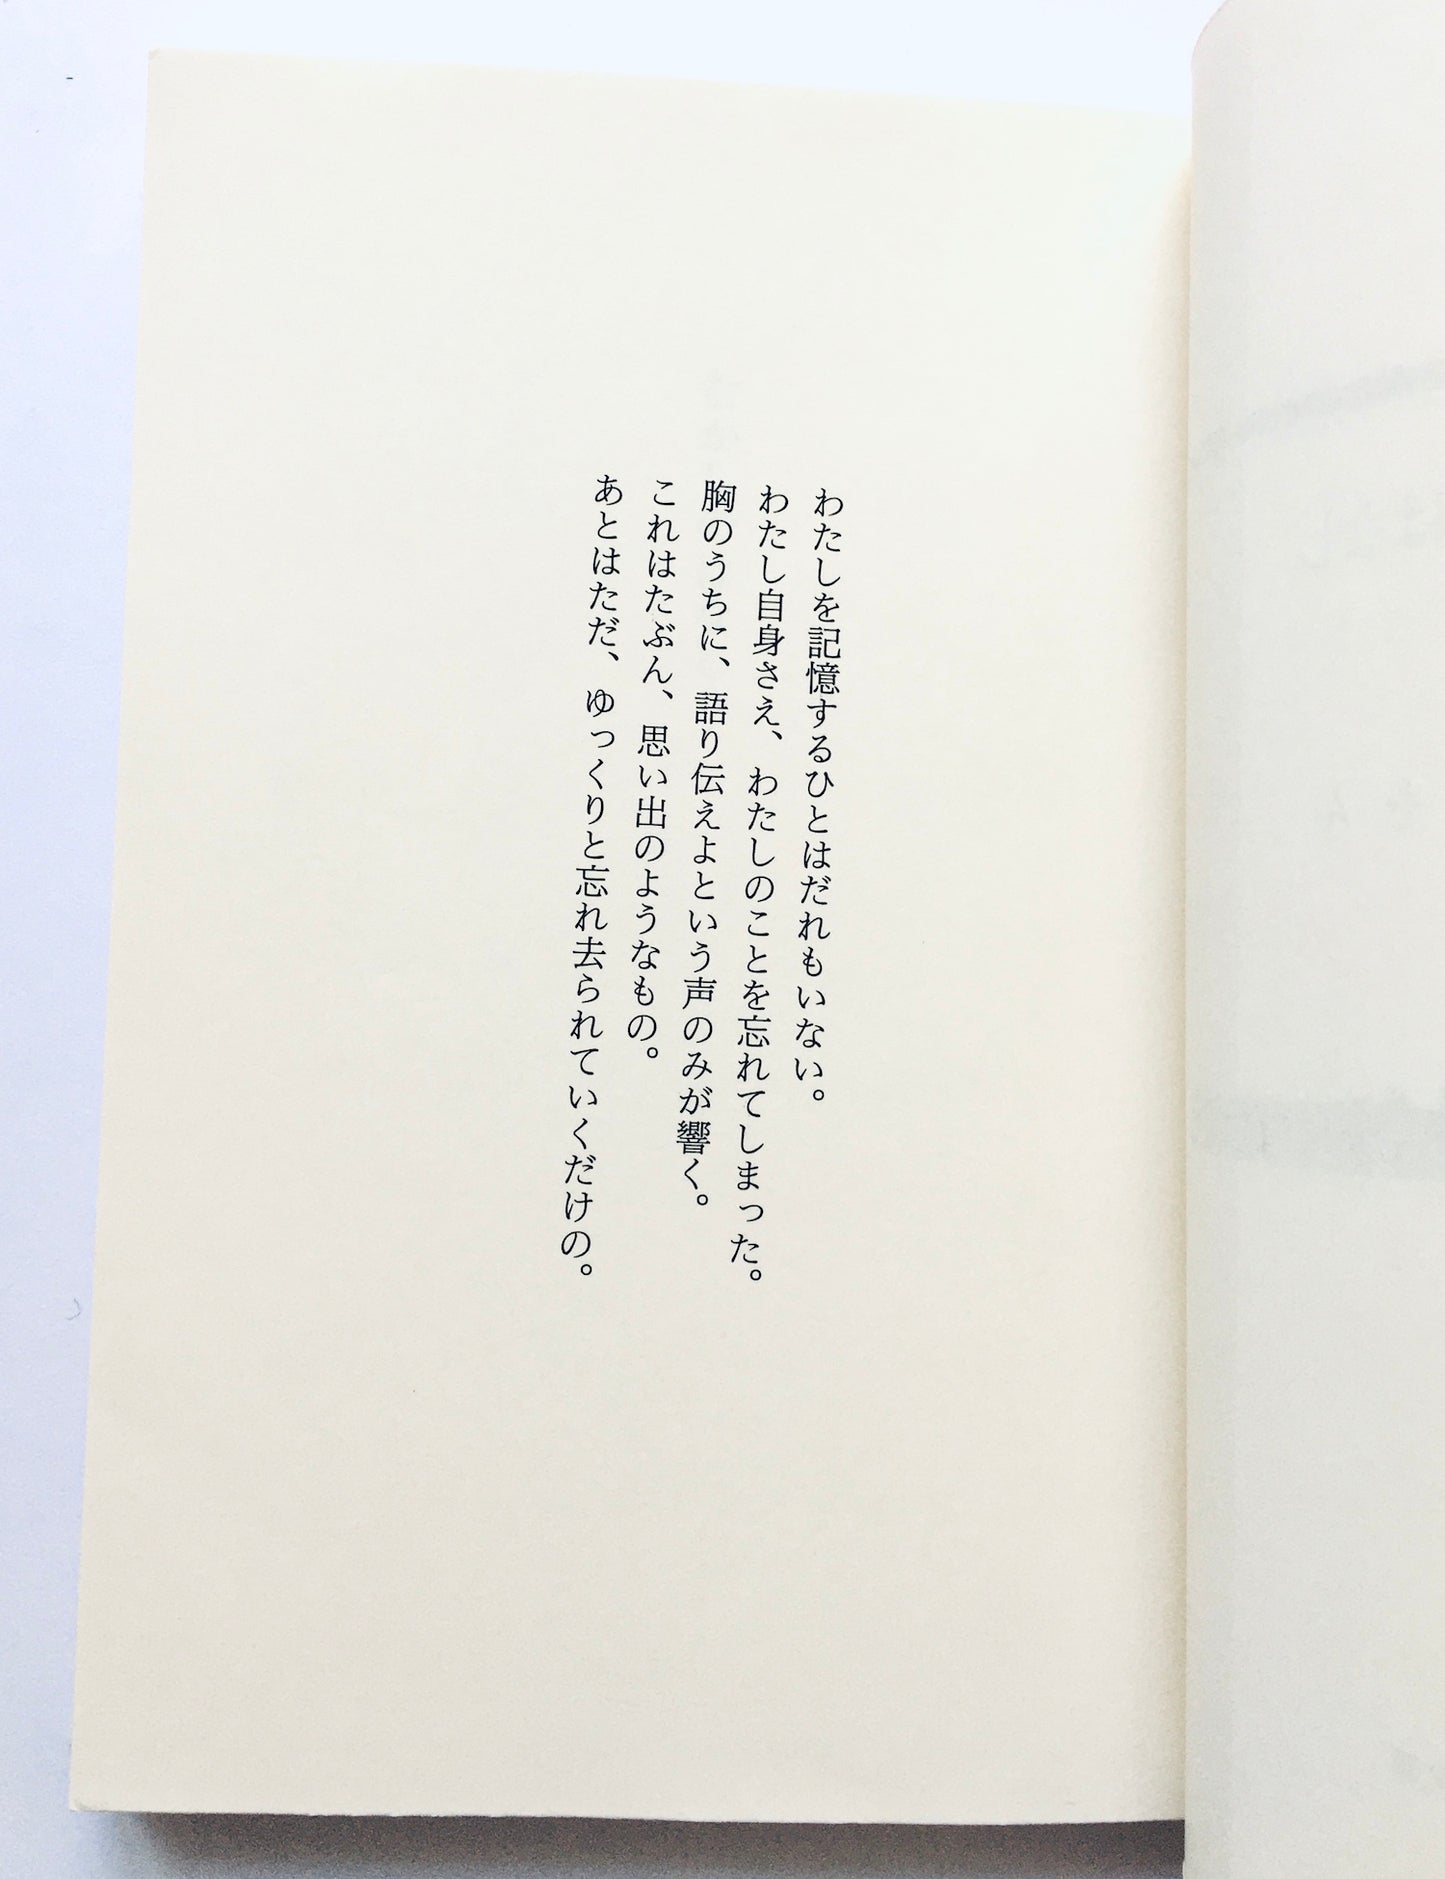 わたしを記憶するひとはだれもいない。
わたし自身さえ、わたしのことを忘れてしまった。
胸のうちに、語り伝えよという声のみが響く。
これはたぶん、思い出のようなもの。
あとはただ、ゆっくりと忘れ去られていくだけの。